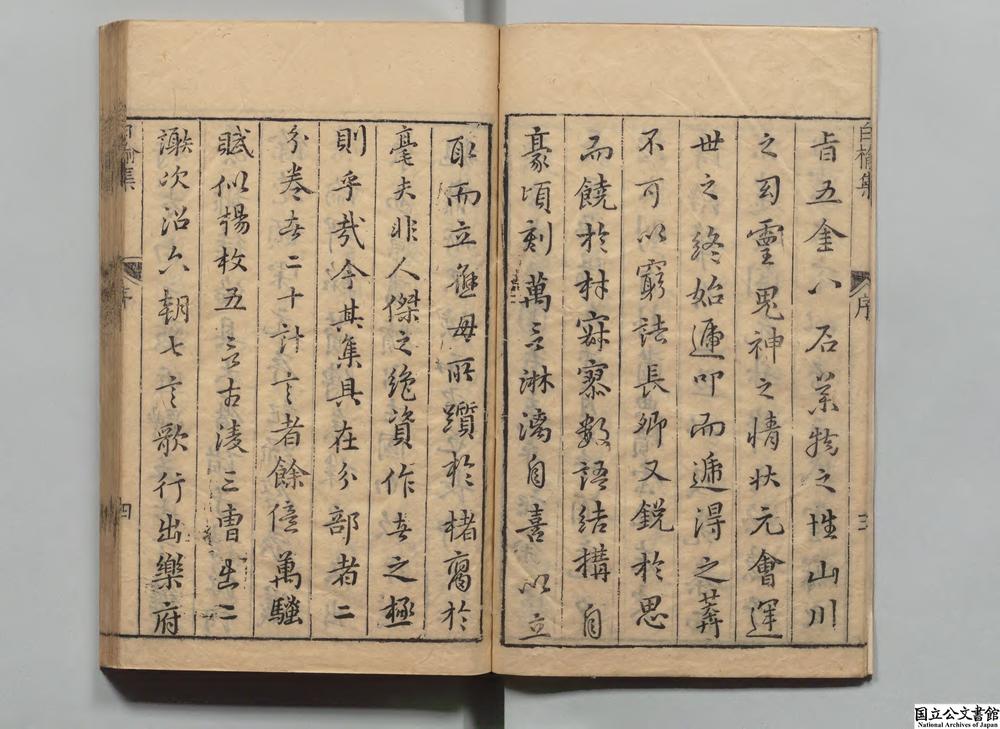 白榆集
序
三
旨五金八石業物之性山川
之司靈鬼神之情狀元會運
世之終始遞叩而遞得之莽
不可以窮詰長卿又銳於思
而饒於材寂寥數語結搆自
豪頃刻萬言淋漓自喜以立
取而立應毋所躓於楮腐於
毫夫非人傑之絕資作者之極
則乎哉今其集具在分部者二
分卷者二十計言者餘億萬騷
賦似楊枚五言古淩三曹出二
謝次沿六朝七言歌行出樂府
白榆集
序
四
国立公文書館
National Archives of Japan